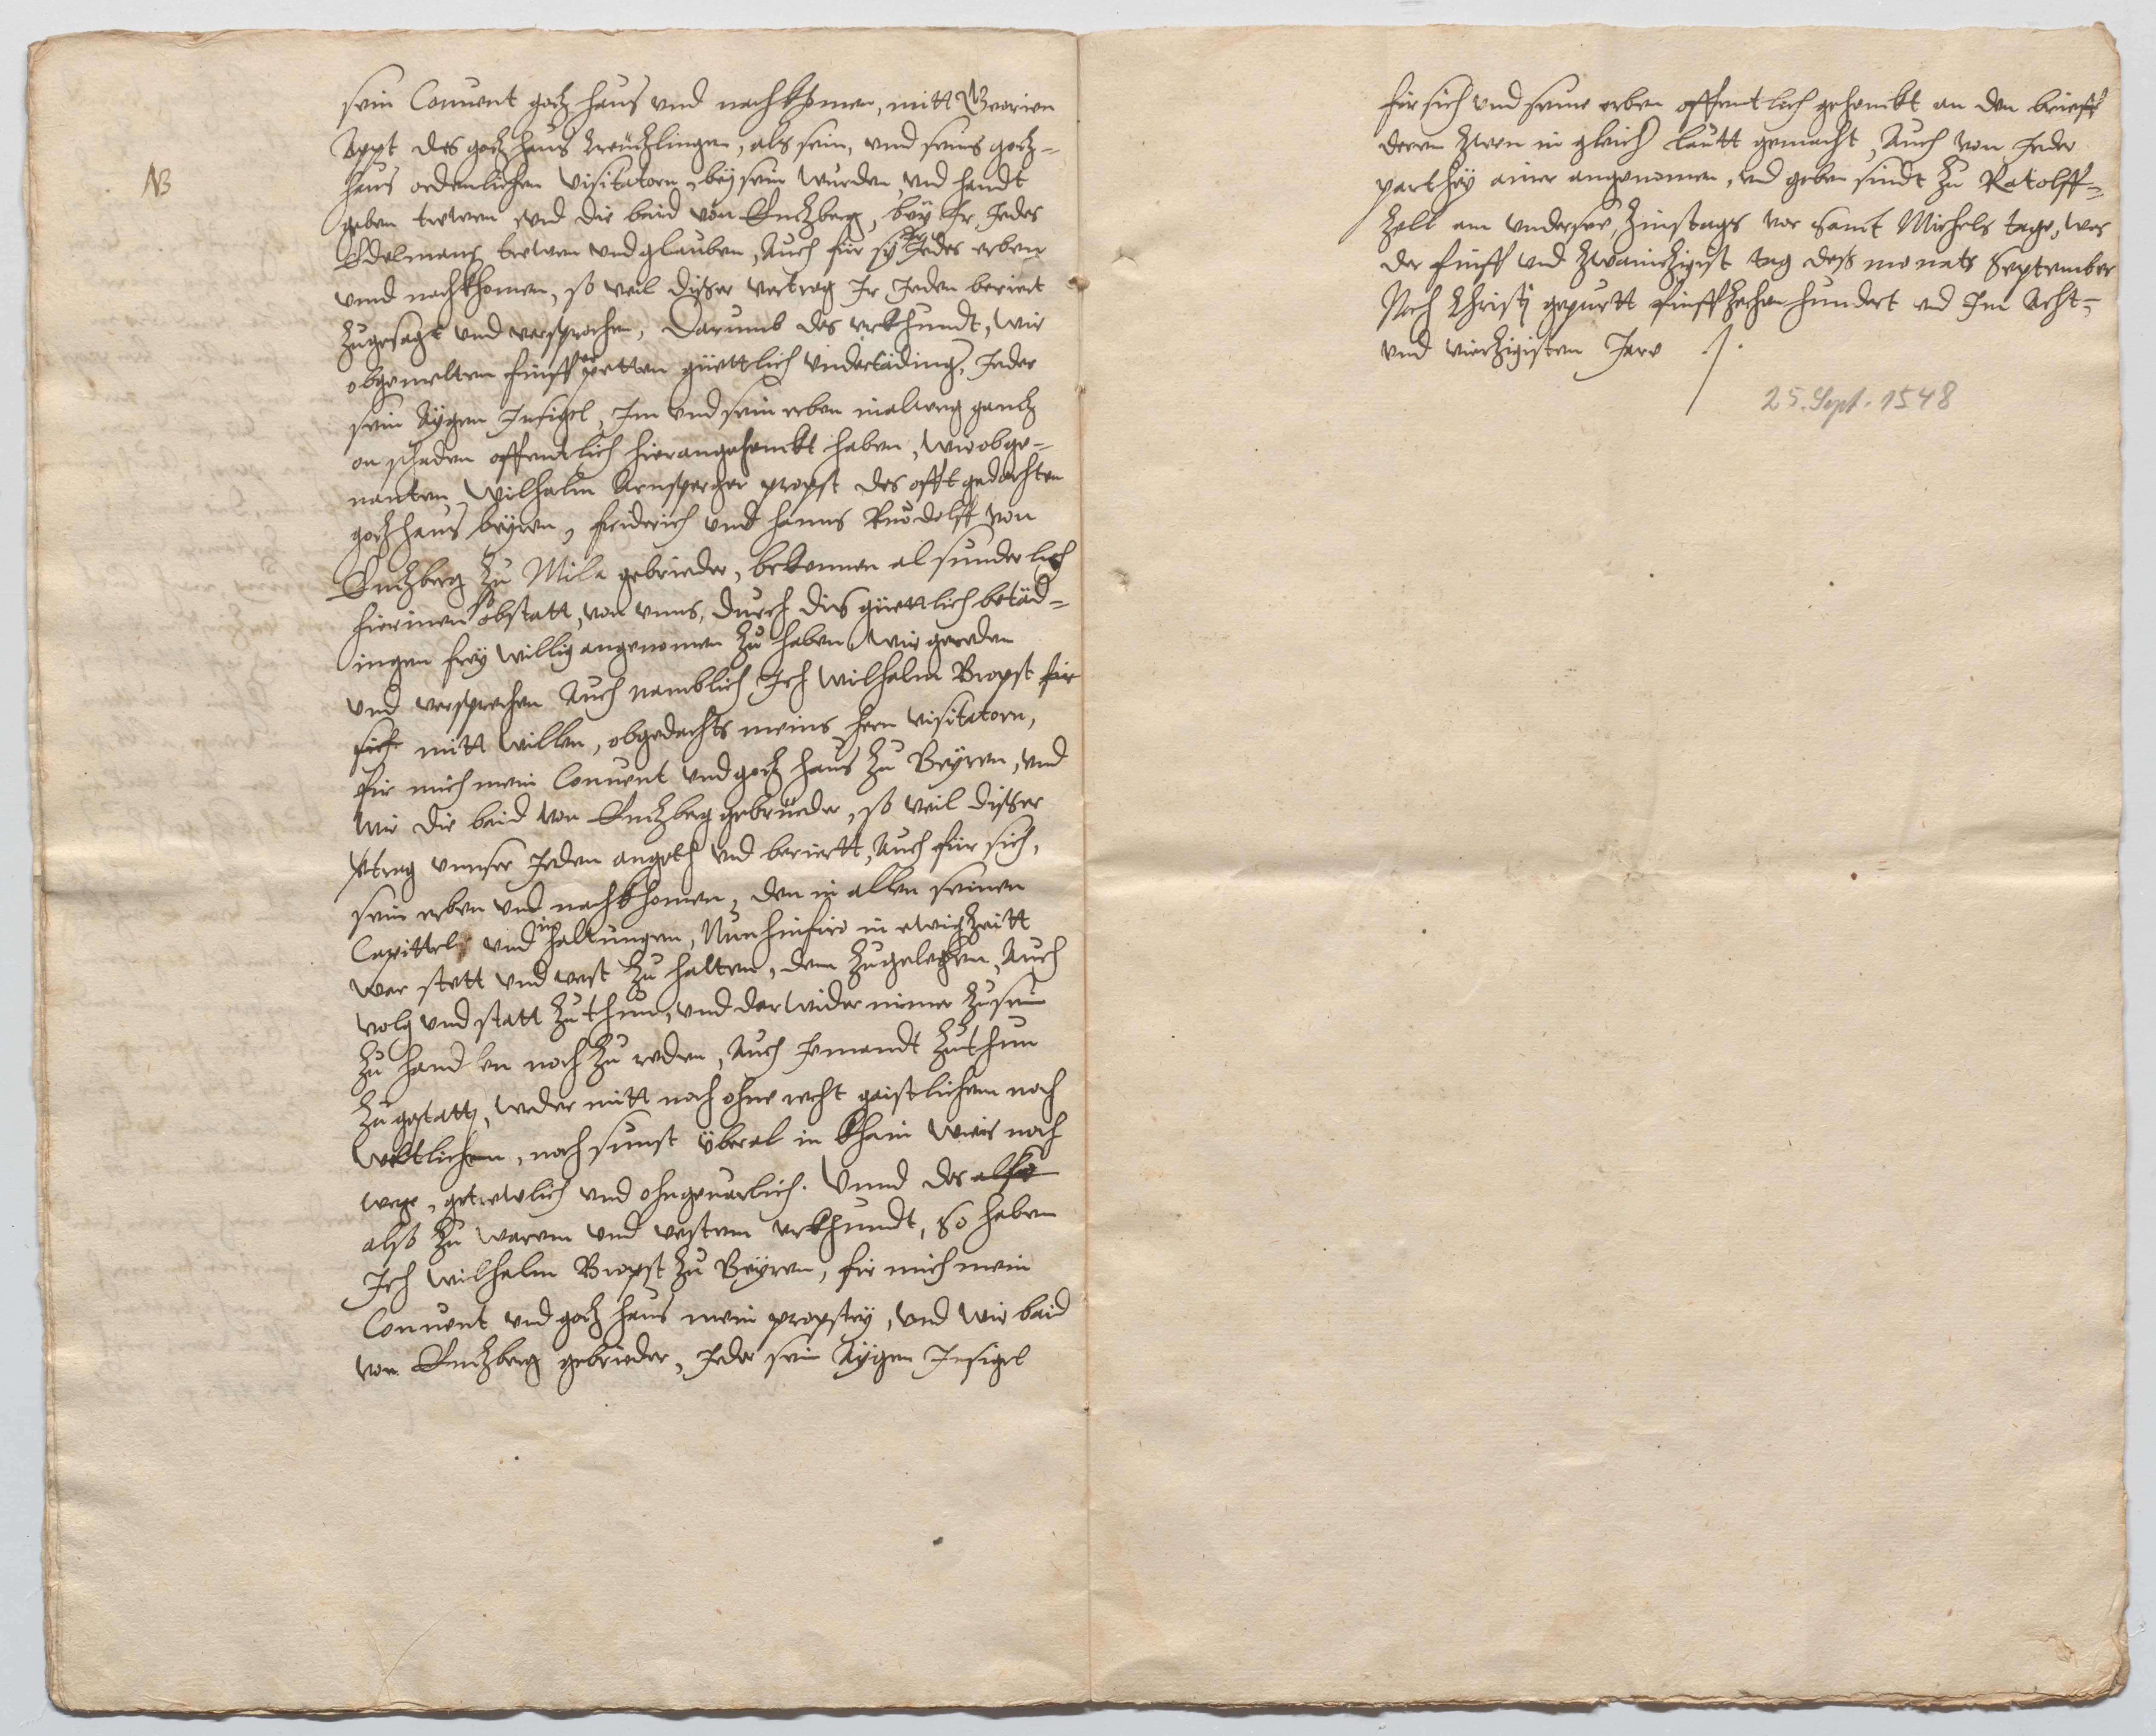 sein Conuent gotz haus vnd nachkhomen, mitt Georien
Appt des gotz haus Kreützlingen, als sein, vnd seins gotz-
NB
haus ordenlichen visitatorn, bey sein wurden vnd handt
geben trewen vnd die baid von Entzberg, bey Ir Jedes
Edelmans trewen vnd glauben, Auch für sy Ir Jedes erben
vnnd nachkhomen, so veil disser vertrag Ir Jeden beriert
zugesagt vnd versprochen, Darumb des vrkhundt, wir
obgemelten fünff erpetten güettlich vndertäding, Jeder
sein Aygen Insigel, Im vnd sein erben inalweg gantz
on schaden offentlich hierangehenckt haben, wir obge-
nanten Wilhalm Arnsperger propst des offt gedachten
gotzhaus beyren, friderich vnd hanns Ruodolff von
Entzberg zu Mila gebrieder, bekennen al sunderlich
hierinen so obstatt, von vnns, durch dis güettlich betäd-
ingen frey willig angenomen zu haben wir gereden
vnd versprechen Auch namblich Ich Wilhalm Bropst für
sich mitt willen, obgedachts meins hern visitatorn,
für mich mein Conuent vnd gotz haus zu Beyren, vnd
wir die baid von Entzberg gebrüeder, so veil disser
vtrag vnnser Jeden angeth vnd beriertt, Auch für sich,
sein erben vnd nachkhomen, den in allen seinen
Capitteln vnd inhaltungen, Nun hinfiro in ewig zeitt
war stett vnd vest zu halten, dem zugeleben, Auch
volg vnd statt zu thun, vnd darwider nimer zu sein
zu handlen noch zu reden, Auch Jemandt zu thun
zu gestatt, weder mitt noch ohne recht geistlichem noch
weltlichem, noch sunst überal in khain weis noch
wege, getrewlich vnd ohngeuarlich. Vnnd des also
also zu warem vnd vestem vrkhundt, so haben
Ich Wilhalm Bropst zu Beyren, für mich mein
Conuent vnd gotz haus mein propstey, vnd wir baid
von Entzberg gebrieder, Jeder sein Aygen Insigel
für sich vnd seine erben offentlich gehenckt an den brieff
deren zwen in gleich lautt gemacht, Auch von Jeder
parthey ainer angenomen, vnd geben sindt zu Ratolff-
zell am vndersee, Zinstags vor Sant Michels tage, was
der fünff vnd zwainzigist tag deß monats September
Nach Christj gepurtt fünffzehen hundert vnd Im Acht-
vnd vierzigisten Jare ./.
25. Sept. 1548